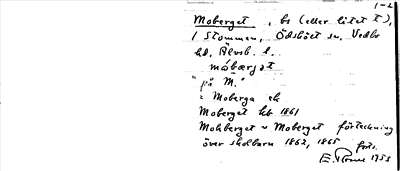 1-2
Moberget, br (eller litet t),
i Stommen, Ödsköet sn, Vedbo
hd, Älvsb. l.
móbærjat
"på M."
= Moberga ek
Moberget hb 1861
Mohberget ~ Moberget förteckning
över skolbarn 1862, 1865
forts.
E. 1953